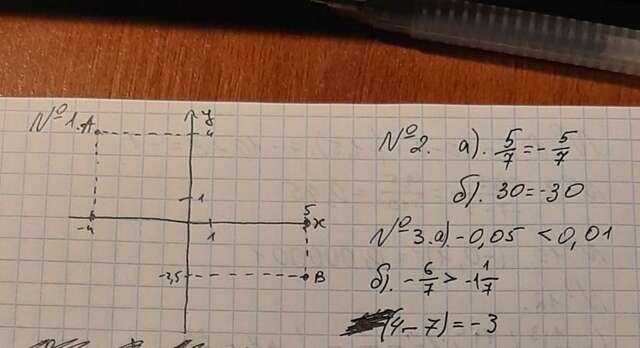 №1.
A
y
4
1
-4
1
5
x
-2,5
B
№2. а). 5/7 = -5/7
б). 30 = -30
№3. а) -0,05 < 0,01
б). -6/7 > -1 1/7
(4-7) = -3